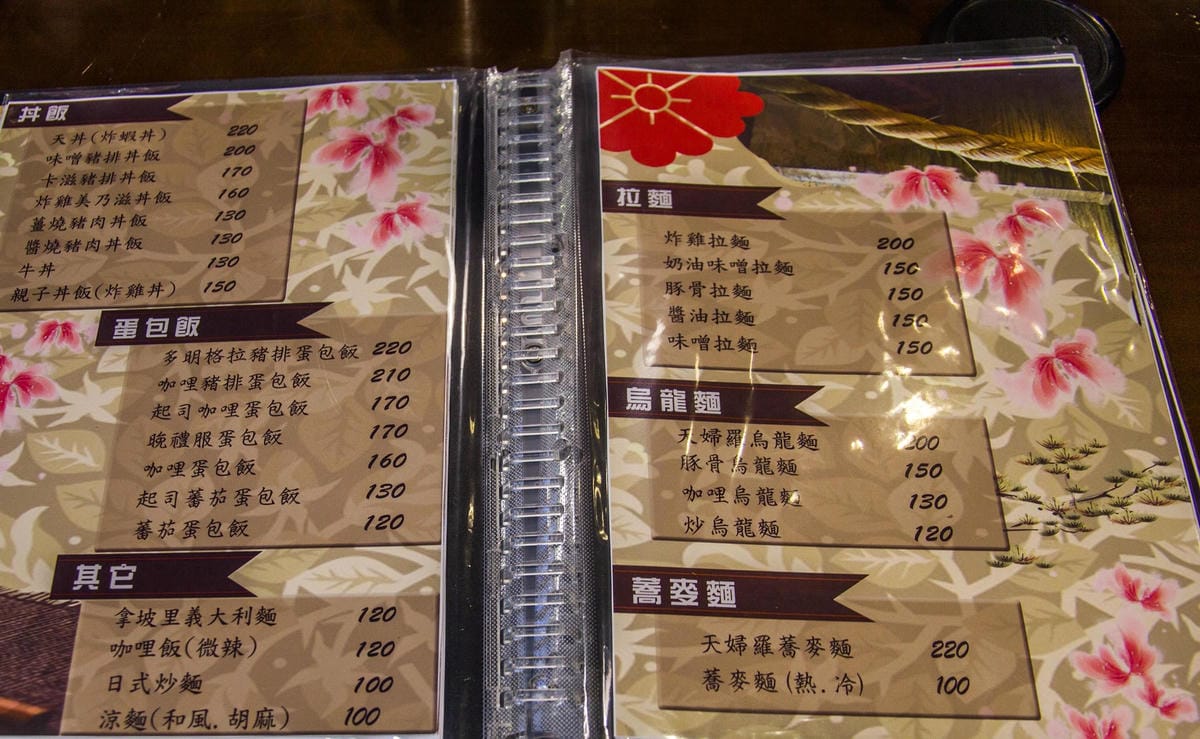 丼飯
天丼(炸蝦丼) 220
味噌豬排丼飯 200
卡滋豬排丼飯 170
炸雞美乃滋丼飯 160
薑燒豬肉丼飯 130
醬燒豬肉丼飯 130
牛丼 130
親子丼飯(炸雞丼) 150
蛋包飯
多明格拉豬排蛋包飯 220
咖哩豬排蛋包飯 210
起司咖哩蛋包飯 170
晚禮服蛋包飯 170
咖哩蛋包飯 160
起司蕃茄蛋包飯 130
蕃茄蛋包飯 120
其它
拿坡里義大利麵 120
咖哩飯(微辣) 120
日式炒麵 100
涼麵(和風.胡麻) 100
拉麵
炸雞拉麵 200
奶油味噌拉麵 150
豚骨拉麵 150
醬油拉麵 150
味噌拉麵 150
烏龍麵
天婦羅烏龍麵 200
豚骨烏龍麵 150
咖哩烏龍麵 130
炒烏龍麵 120
蕎麥麵
天婦羅蕎麥麵 220
蕎麥麵(熱.冷) 100